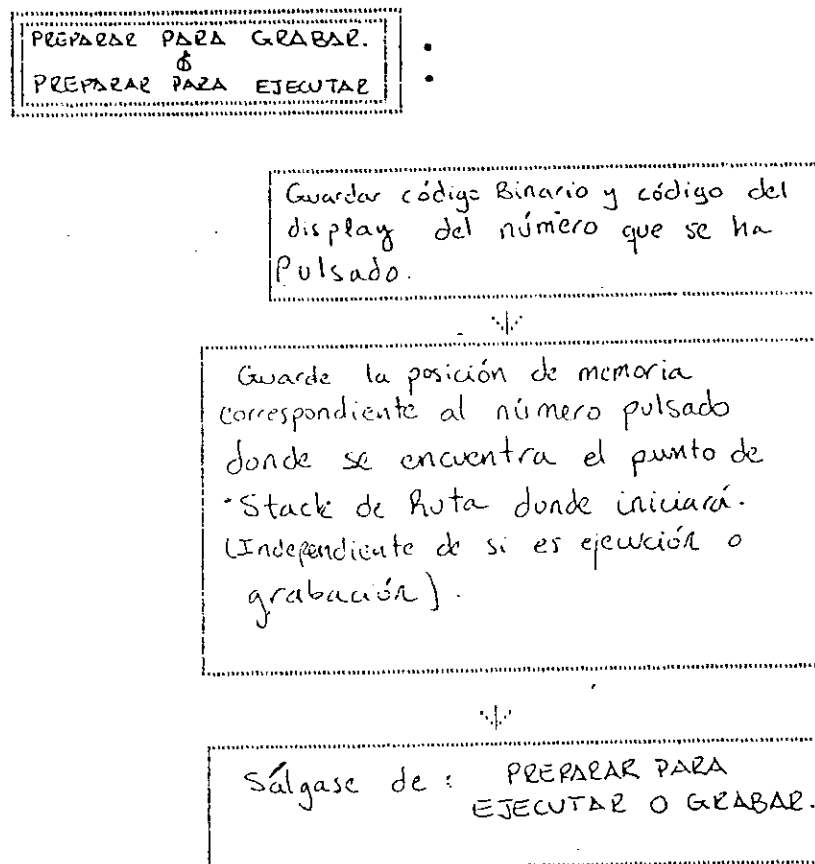 PREPARAR PARA GRABAR.
ó
PREPARAR PARA EJECUTAR
:
Guardar código Binario y código del
display del número que se ha
Pulsado.
Guarde la posición de memoria
correspondiente al número pulsado
donde se encuentra el punto de
Stack de Ruta donde iniciará.
(Independiente de si es ejecución o
grabación).
Sálgase de : PREPARAR PARA
EJECUTAR O GRABAR.